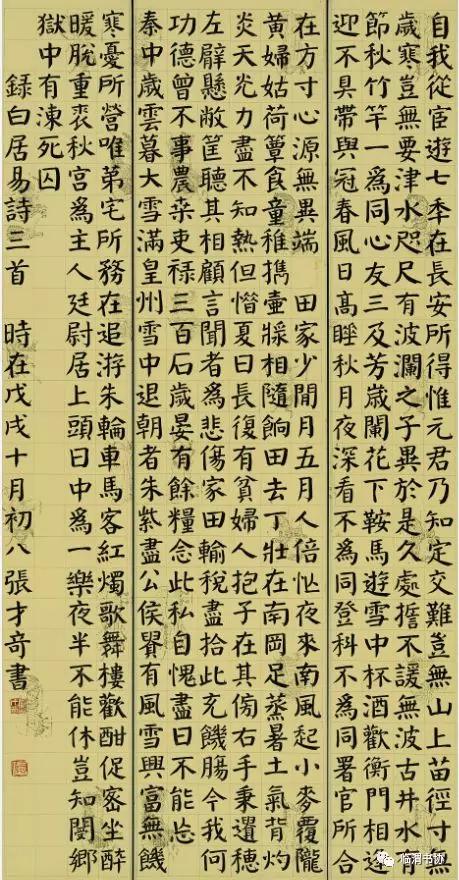 自我從宦遊七秊在長安所得惟元君乃知定交難豈無山上苗徑寸無
歲寒豈無要津水咫尺有波瀾之子異於是久處誓不諼無波古井水有
節秋竹竿一為同心友三及芳歲闌花下鞍馬遊雪中杯酒歡衡門相逢
迎不具帶與冠春風日高睡秋月夜深看不為同登科不為同署官所合
在方寸心源無異端　田家少閒月五月人倍忙夜來南風起小麥覆隴
黃婦姑荷簞食童稚攜壺漿相隨餉田去丁壯在南岡足蒸暑土氣背灼
炎天光力盡不知熱但惜夏日長復有貧婦人抱子在其傍右手秉遺穗
左臂懸敝筐聽其相顧言聞者為悲傷家田輸稅盡拾此充饑腸今我何
功德曾不事農桑吏祿三百石歲晏有餘糧念此私自愧盡日不能忘
秦中歲雲暮大雪滿皇州雪中退朝者朱紫盡公侯貴有風雪興富無饑
寒憂所營唯第宅所務在追游朱輪車馬客紅燭歌舞樓歡酣促密坐醉
暖脫重裘秋宮為主人廷尉居上頭日中為一樂夜半不能休豈知閿鄉
獄中有凍死囚
錄白居易詩三首　時在戊戌十月初八張才奇書
临渭书协